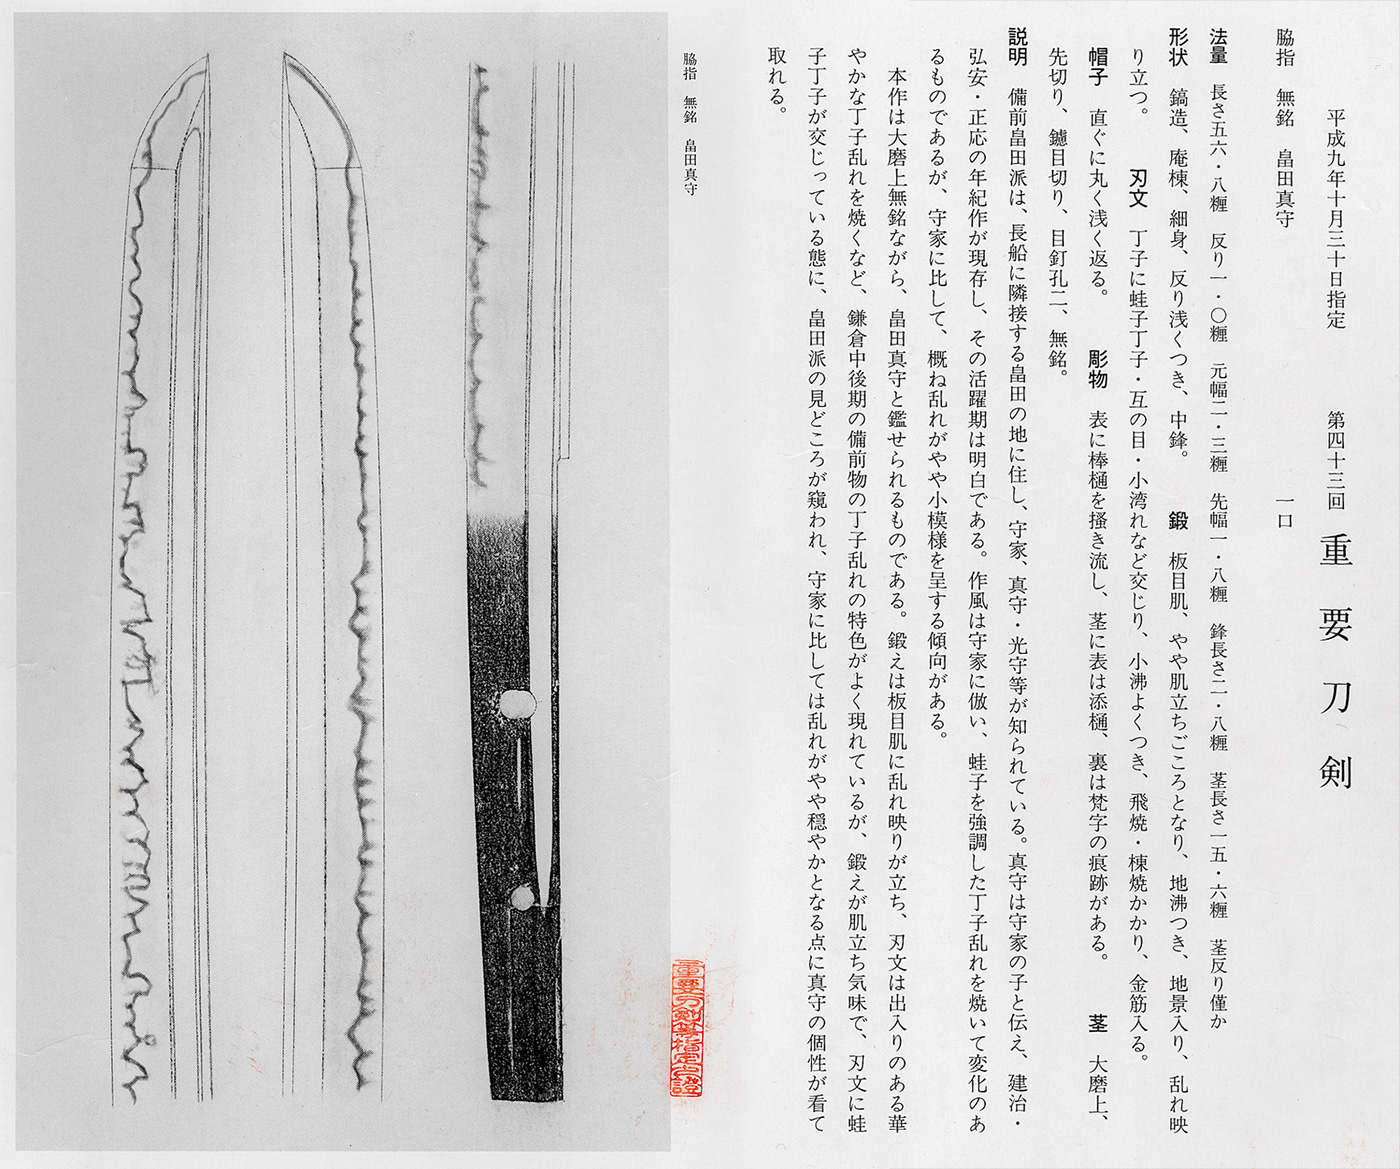 平成九年十月三十日指定　第四十三回　重要刀剣
脇指　無銘　畠田真守　一口
法量　長さ五六・八糎　反り一・〇糎　元幅二・三糎　先幅一・八糎　鋒長さ二・八糎　茎長さ一五・六糎　茎反り僅か
形状　鎬造、庵棟、細身、反り浅くつき、中鋒。　鍛　板目肌、やや肌立ちごころとなり、地沸つき、地景入り、乱れ映
り立つ。　刃文　丁子に蛙子丁子・互の目・小湾れなど交じり、小沸よくつき、飛焼・棟焼かかり、金筋入る。
帽子　直ぐに丸く浅く返る。　彫物　表に棒樋を掻き流し、茎に表は添樋、裏は梵字の痕跡がある。　茎　大磨上、
先切り、鑢目切り、目釘孔二、無銘。
説明　備前畠田派は、長船に隣接する畠田の地に住し、守家、真守・光守等が知られている。真守は守家の子と伝え、建治・
弘安・正応の年紀作が現存し、その活躍期は明白である。作風は守家に倣い、蛙子を強調した丁子乱れを焼いて変化のあ
るものであるが、守家に比して、概ね乱れがやや小模様を呈する傾向がある。
本作は大磨上無銘ながら、畠田真守と鑑せられるものである。鍛えは板目肌に乱れ映りが立ち、刃文は出入りのある華
やかな丁子乱れを焼くなど、鎌倉中後期の備前物の丁子乱れの特色がよく現れているが、鍛えが肌立ち気味で、刃文に蛙
子丁子が交じっている態に、畠田派の見どころが窺われ、守家に比しては乱れがやや穏やかとなる点に真守の個性が看て
取れる。
脇指　無銘　畠田真守
重要刀剣等指定之證